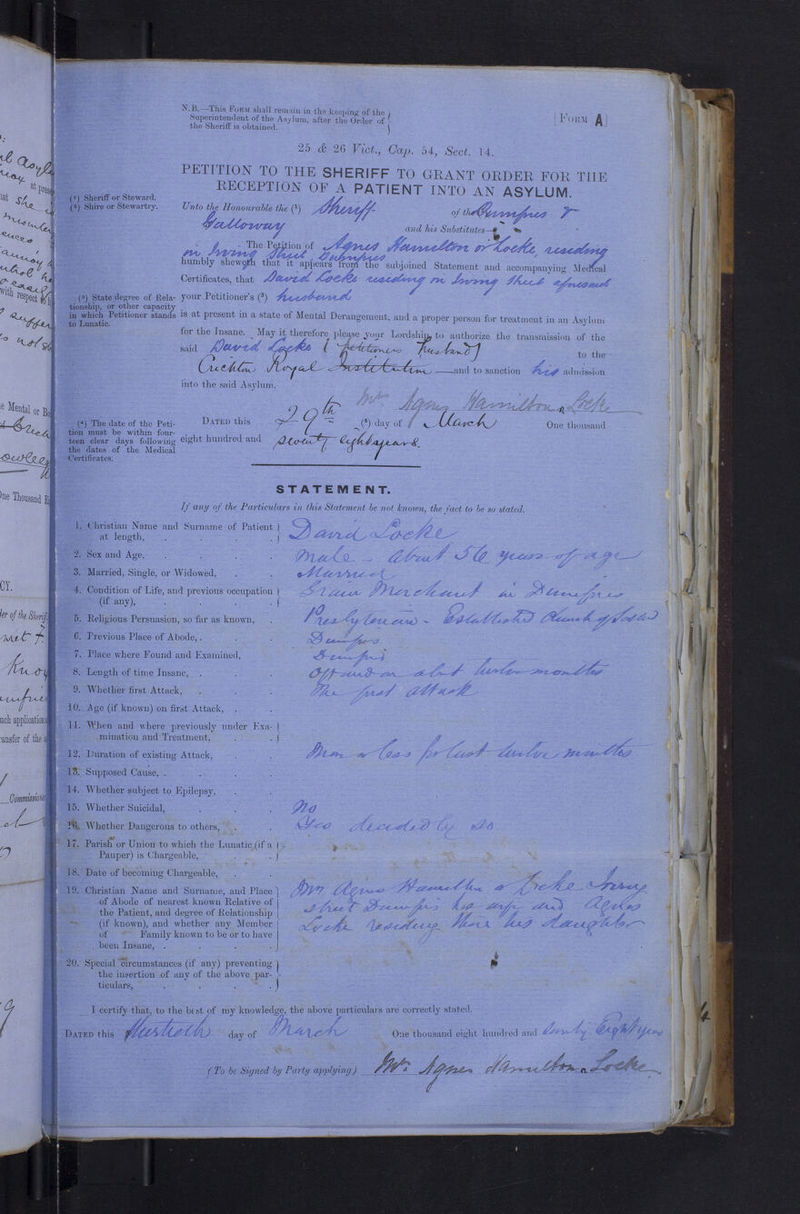 N.B.—This FORM shall remain in the keeping of the
Superintendent of the Asylum, after the Order of
the Sheriff is obtained.
[FORM A]
25 & 26 Vict., Cap. 54, Sect. 14.
PETITION TO THE SHERIFF TO GRANT ORDER FOR THE
RECEPTION OF A PATIENT INTO AN ASYLUM.
(¹) Sheriff or Steward.
(²) Shire or Stewartry.
Unto the Honourable the (¹) Sheriff of the Dumfries &
Galloway and his Substitutes—
The Petition of Agnes Hamilton or Locke, residing
in Irving Street Dumfries
humbly sheweth that it appears from the subjoined Statement and accompanying Medical
Certificates, that David Locke residing in Irving Street aforesaid
(³) State degree of Rela-
tionship, or other capacity
in which Petitioner stands
to Lunatic.
your Petitioner's (³) husband
is at present in a state of Mental Derangement, and a proper person for treatment in an Asylum
for the Insane. May it therefore please your Lordship to authorize the transmission of the
said David Locke (petitioners husband) to the
Crichton Royal Institution —and to sanction his admission
into the said Asylum.
Mrs Agnes Hamilton or Locke
(⁴) The date of the Peti-
tion must be within four-
teen clear days following
the dates of the Medical
Certificates.
DATED this 29th (⁴) day of March One thousand
eight hundred and seventy eight years.
STATEMENT.
If any of the Particulars in this Statement be not known, the fact to be so stated.
1. Christian Name and Surname of Patient
at length, David Locke
2. Sex and Age, Male - about 56 years of age
3. Married, Single, or Widowed, Married
4. Condition of Life, and previous occupation
(if any), Grain Merchant in Dumfries
5. Religious Persuasion, so far as known, Presbyterian - Established Church of Scotland
6. Previous Place of Abode, Dumfries
7. Place where Found and Examined, Dumfries
8. Length of time Insane, Off and on about twelve months
9. Whether first Attack, The first attack
10. Age (if known) on first Attack,
11. When and where previously under Exa-
mination and Treatment,
12. Duration of existing Attack, More or less for last twelve months
13. Supposed Cause,
14. Whether subject to Epilepsy,
15. Whether Suicidal, No
16. Whether Dangerous to others, Yes decidedly so
17. Parish or Union to which the Lunatic (if a
Pauper) is Chargeable,
18. Date of becoming Chargeable,
19. Christian Name and Surname, and Place
of Abode of nearest known Relative of
the Patient, and degree of Relationship
(if known), and whether any Member
of Family known to be or to have
been Insane,
Mrs Agnes Hamilton or Locke Irving
Street Dumfries his wife and Agnes
Locke residing there his daughter
20. Special circumstances (if any) preventing
the insertion of any of the above par-
ticulars,
I certify that, to the best of my knowledge, the above particulars are correctly stated.
DATED this thirtieth day of March One thousand eight hundred and seventy eight years
(To be Signed by Party applying) Mrs Agnes Hamilton or Locke